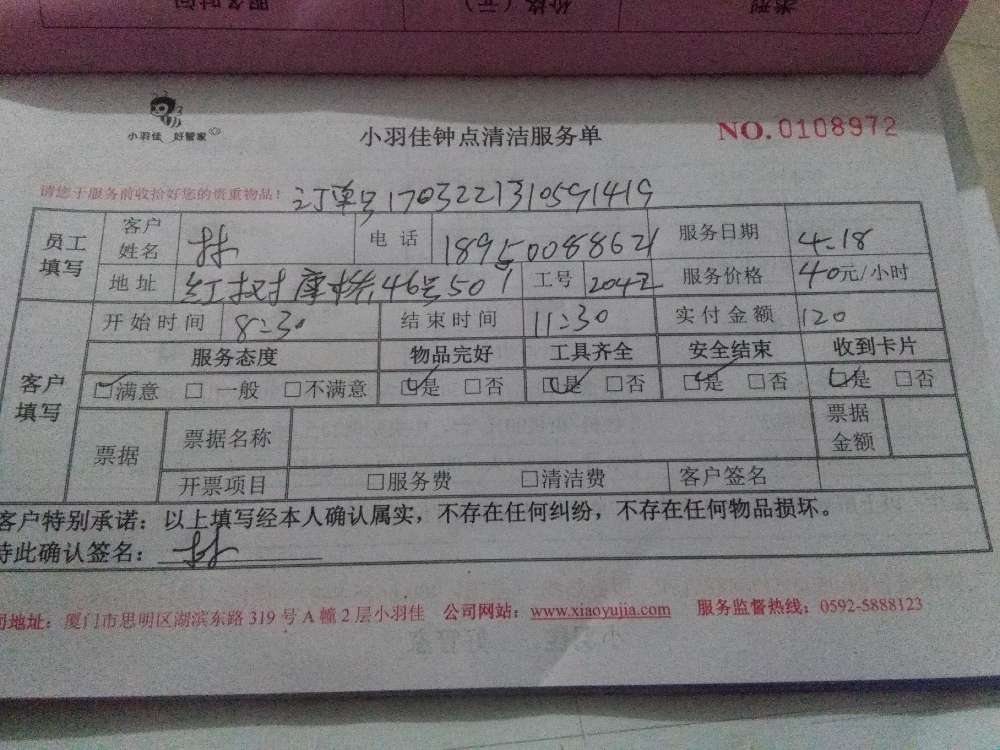 服务时间 价格(元) 类型
小羽佳 好管家
小羽佳钟点清洁服务单
NO.0108972
请您于服务前收拾好您的贵重物品!
订单号170322131059141​9
员工填写 客户姓名 林 电话 18950088621 服务日期 4.18
地址 红树康桥46号501 工号 2042 服务价格 40元/小时
客户填写 开始时间 8:30 结束时间 11:30 实付金额 120
服务态度 物品完好 工具齐全 安全结束 收到卡片
☑满意 □一般 □不满意 ☑是 □否 ☑是 □否 ☑是 □否 ☑是 □否
票据 票据名称 票据金额
开票项目 □服务费 □清洁费 客户签名
客户特别承诺:以上填写经本人确认属实,不存在任何纠纷,不存在任何物品损坏。
特此确认签名: 林
司地址:厦门市思明区湖滨东路 319 号 A 幢 2 层小羽佳 公司网站:www.xiaoyujia.com 服务监督热线:0592-5888123